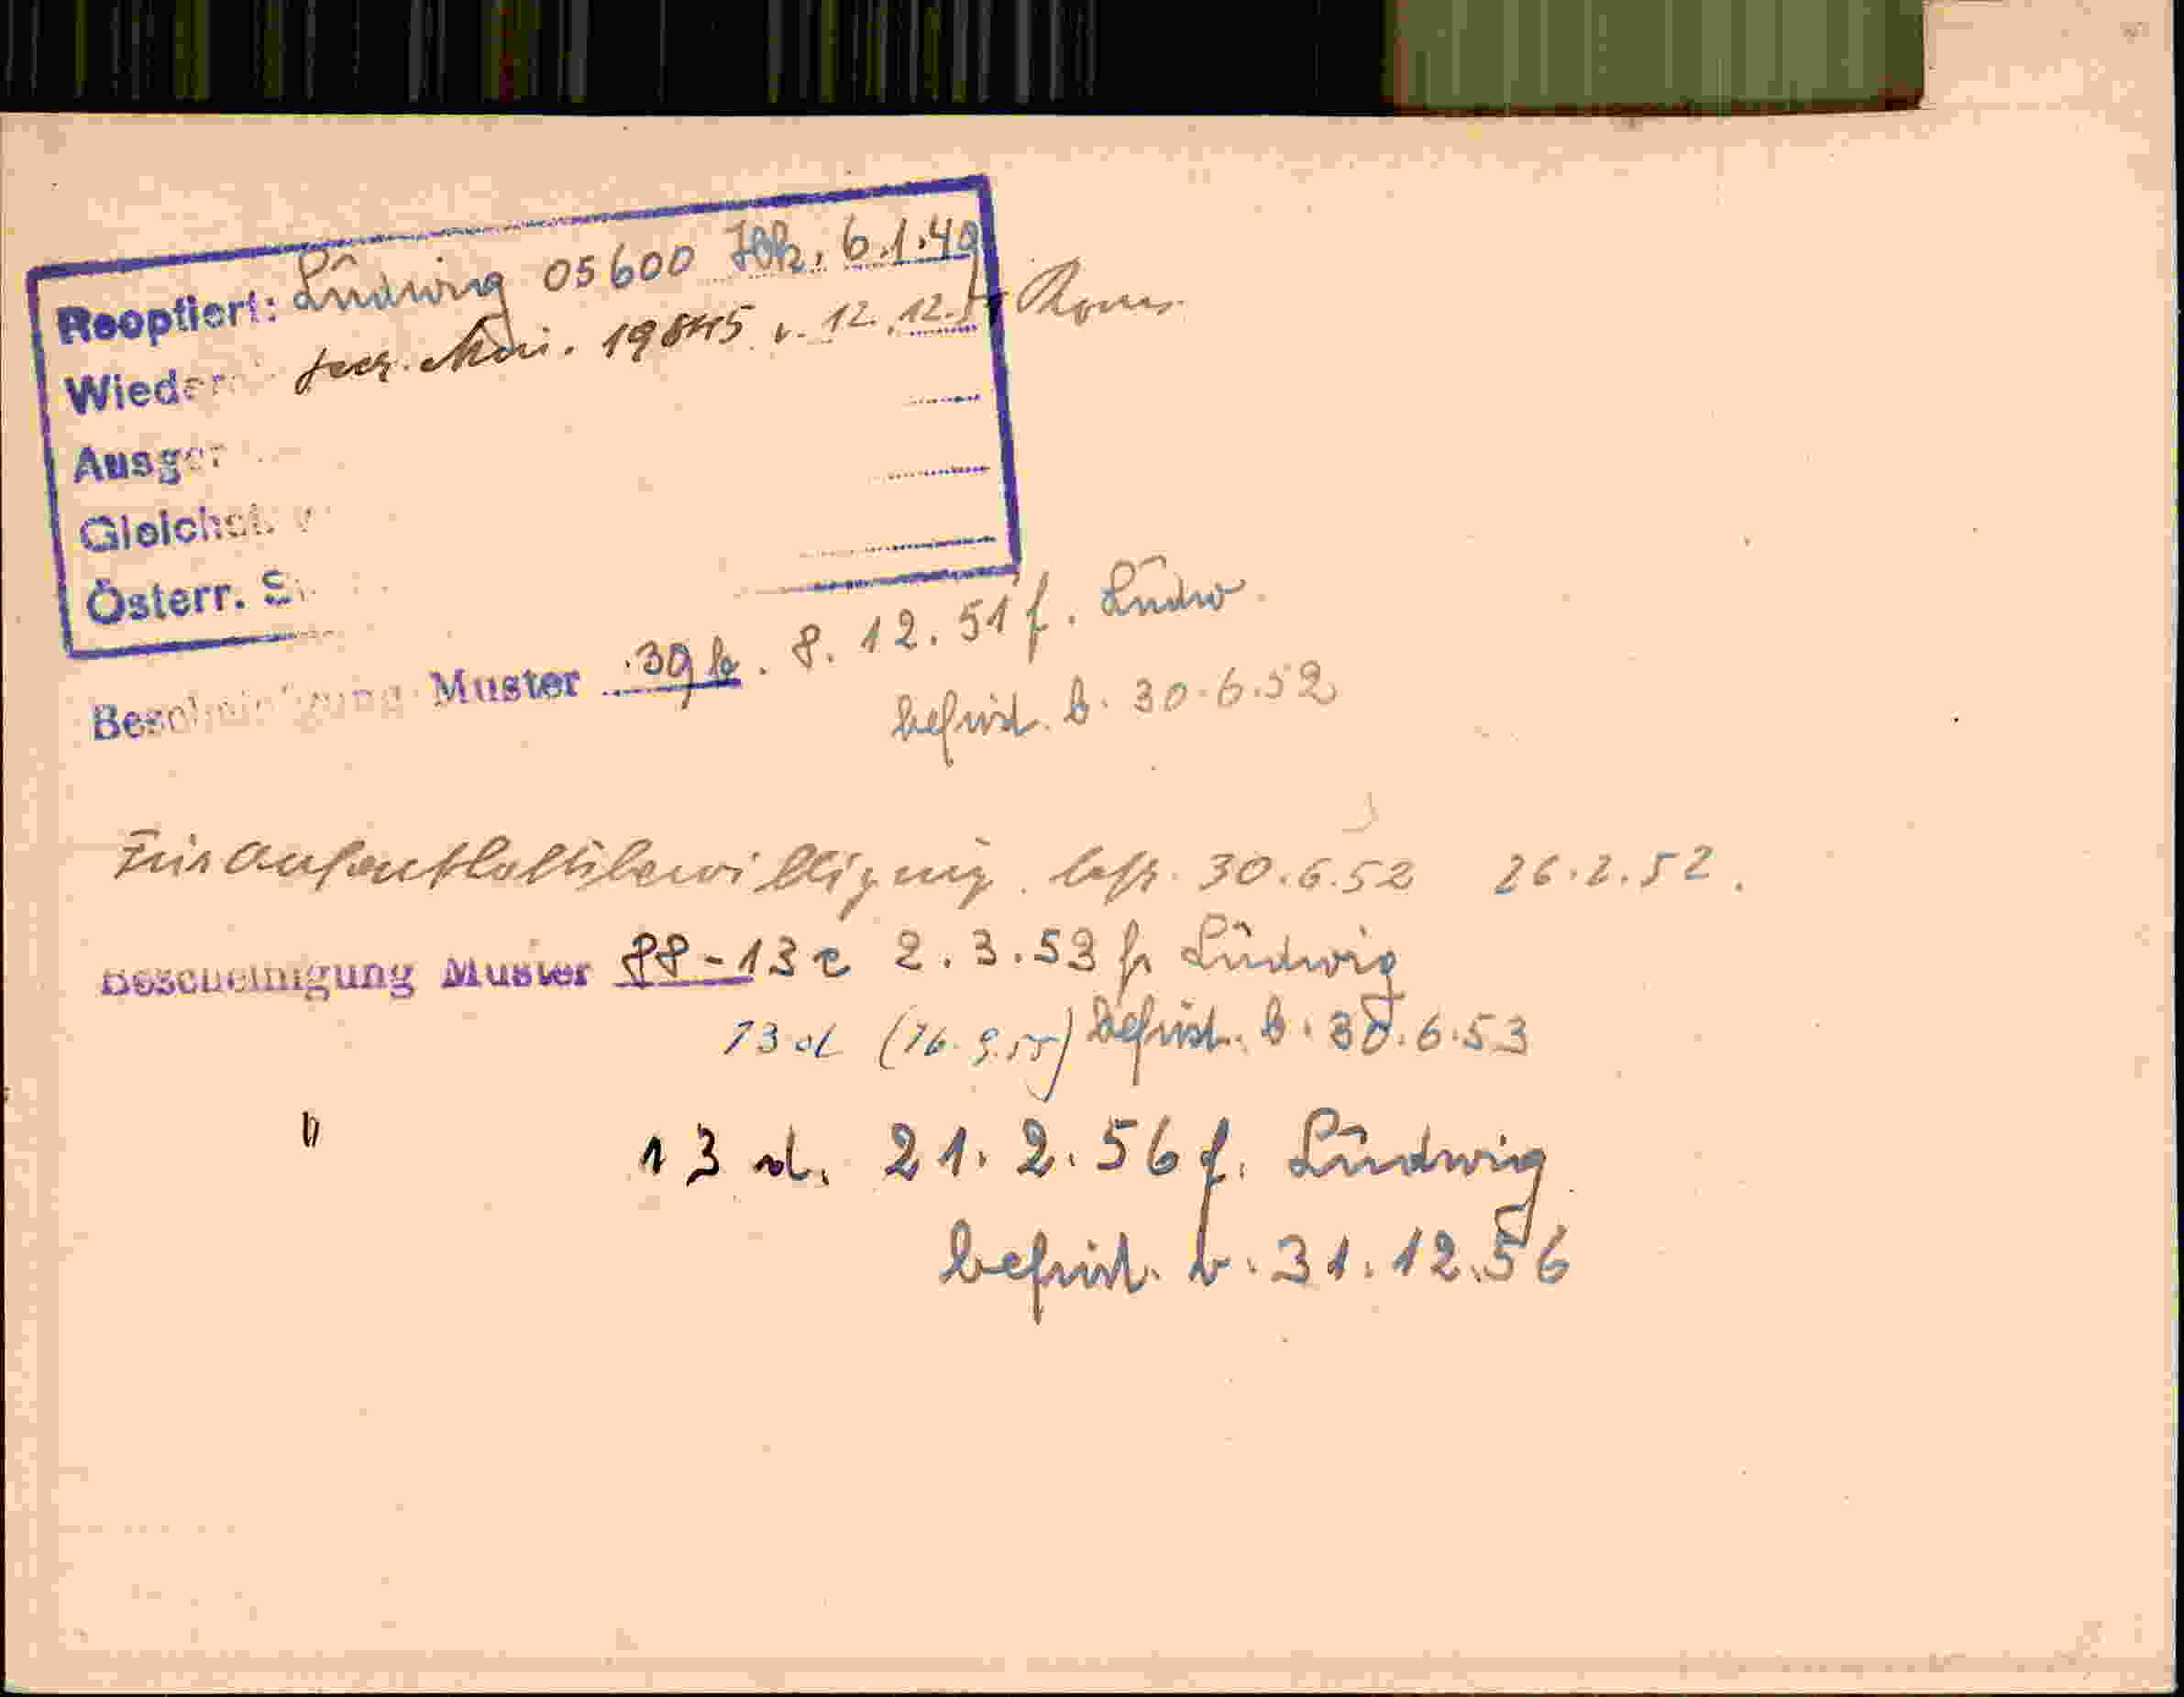 Reoptiert: Ludwig 05600 Ibk. 6.1.49
Wieder 19845 v. 12.12.
Ausger
Gleichst.
Österr. S
Bescheinigung Muster 39 b. 8.12.51 f. Ludw.
befrist. b. 30.6.52
Für Aufenthaltsbewilligung. 30.6.52 26.2.52.
Bescheinigung Muster 88-13c 2.3.53 f. Ludwig
13d (16.9.55) befrist. b. 30.6.53
" 13 d. 21.2.56 f. Ludwig
befrist. b. 31.12.56